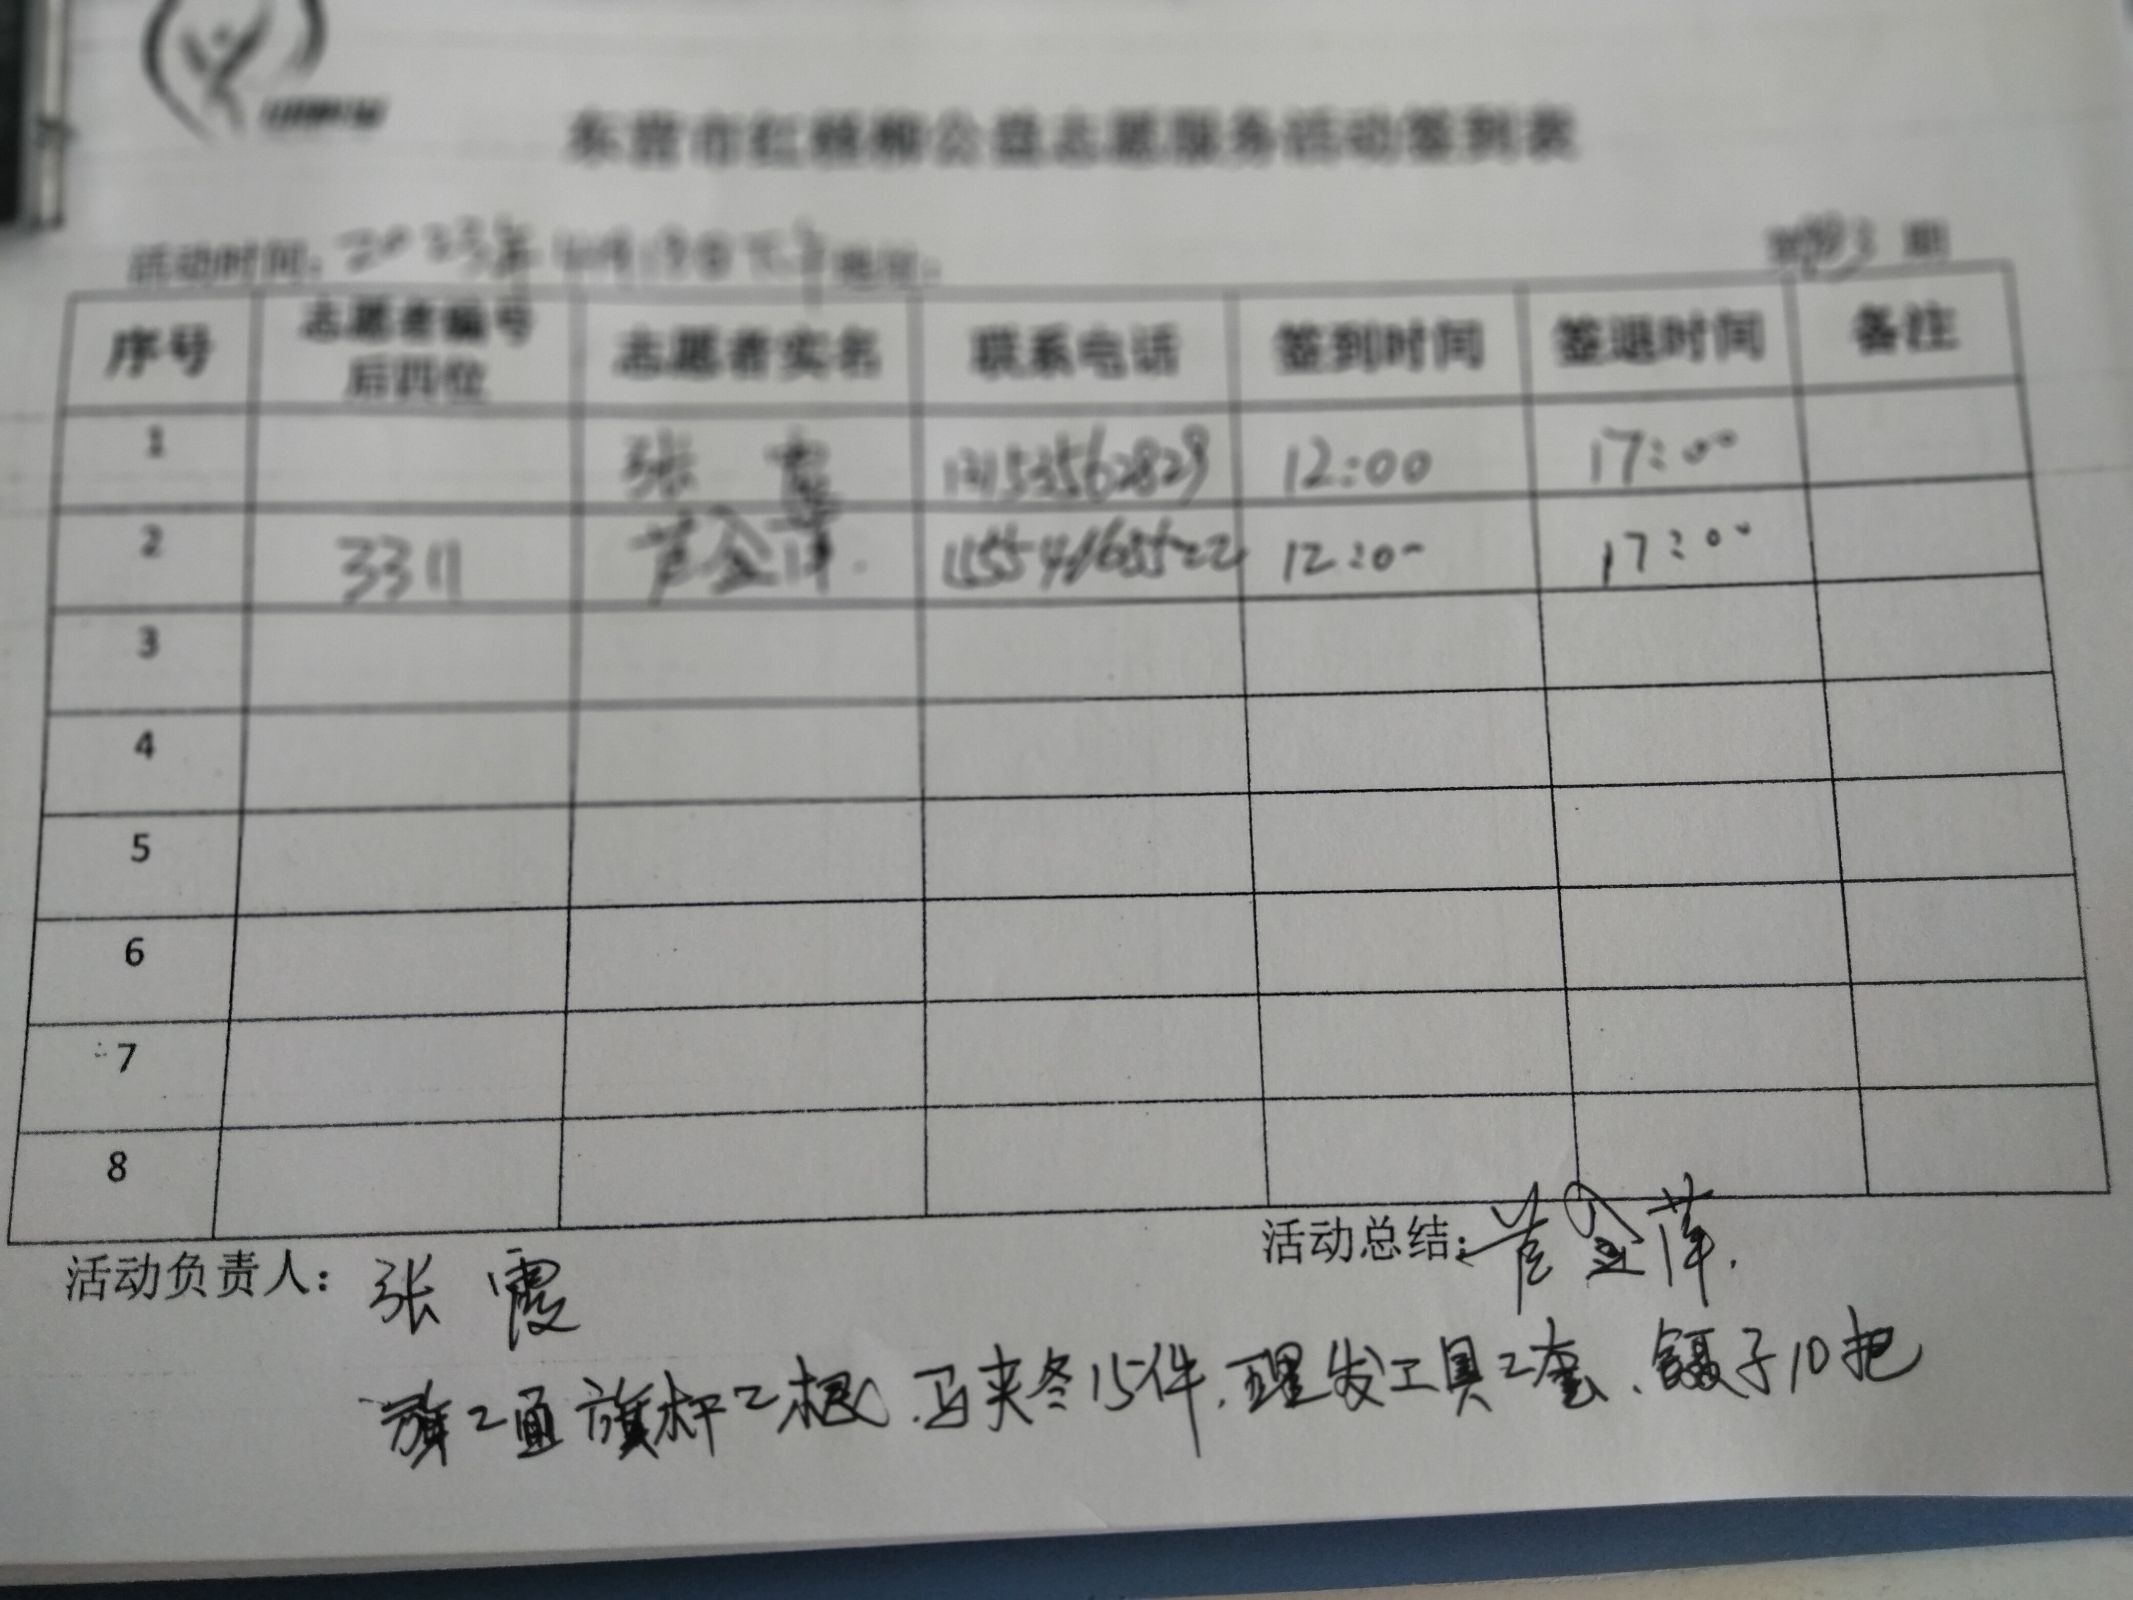 东营市红柽柳公益志愿服务活动签到表
活动时间：2023年4月19日下午 地点：
期
序号 志愿者编号后四位 志愿者实名 联系电话 签到时间 签退时间 备注
1 张霞 12:00 17:00
2 3311 12:00 17:00
3
4
5
6
7
8
活动负责人： 张霞 活动总结：
旗2面 旗杆2根、马夹冬15件、理发工具2套、镊子10把